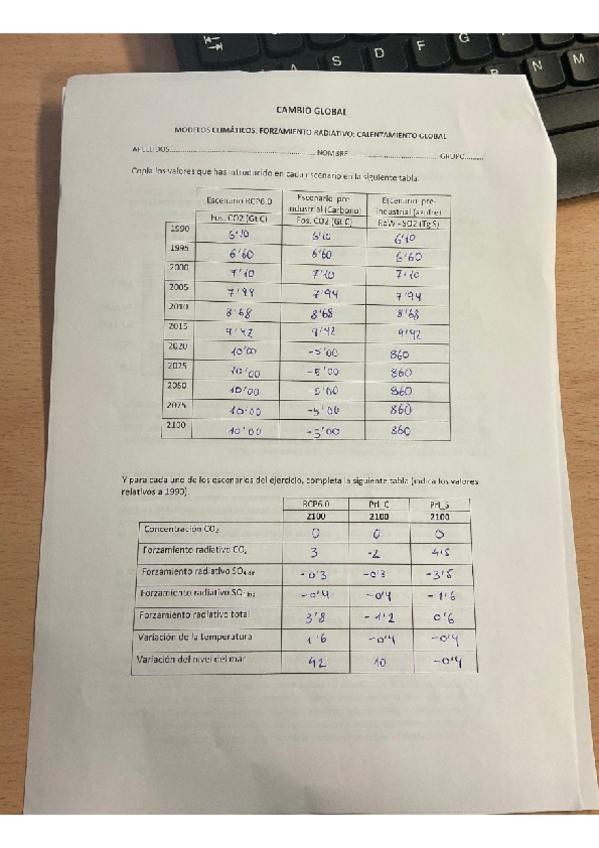 A S D F G
B N M
CAMBIO GLOBAL
MODELOS CLIMÁTICOS: FORZAMIENTO RADIATIVO: CALENTAMIENTO GLOBAL
APELLIDOS NOMBRE GRUPO
Copia los valores que has introducido en cada escenario en la siguiente tabla.
Escenario RCP6.0 Escenario pre-industrial (Carbono) Escenario pre-industrial (azufre)
Fos. CO2 (Gt C) Fos. CO2 (Gt C) RoW - SO2 (Tg S)
1990 6'10 6'10
1995 6'60 6'60 6'60
2000 7'10 7'10 7'10
2005 7'94 7'94 7'94
2010 8'68 8'68 8'68
2015 9'42 9'42 9'42
2020 10'00 -5'00 860
2025 10'00 -5'00 860
2050 10'00 860
2075 10'00 -5'00 860
2100 10'00 -5'00 860
Y para cada uno de los escenarios del ejercicio, completa la siguiente tabla (indica los valores
relativos a 1990).
RCP6.0 PrI_C PrI_S
2100 2100 2100
Concentración CO2 0 0 0
Forzamiento radiativo CO2 3 -2 4'5
Forzamiento radiativo SO4 dir -0'3 -0'3 -3'5
Forzamiento radiativo SO4 ind -0'4 -0'4 -1'6
Forzamiento radiativo total 3'8 -1'2 0'6
Variación de la temperatura 1'6 -0'4 -0'4
Variación del nivel del mar 42 10 -0'4